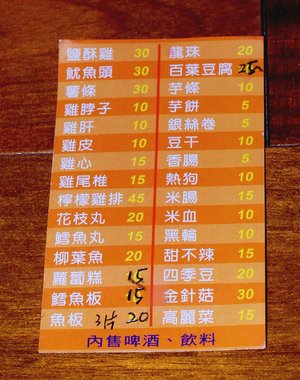 鹽酥雞 30 龍珠 20
魷魚頭 30 百葉豆腐 25
薯條 30 芋條 10
雞脖子 10 芋餅 5
雞肝 10 銀絲卷 5
雞皮 10 豆干 10
雞心 15 香腸 5
雞尾椎 15 熱狗 10
檸檬雞排 45 米腸 15
花枝丸 20 米血 10
鱈魚丸 15 黑輪 10
柳葉魚 20 甜不辣 15
蘿蔔糕 15 四季豆 20
鱈魚板 15 金針菇 30
魚板 3片 20 高麗菜 15
內售啤酒、飲料